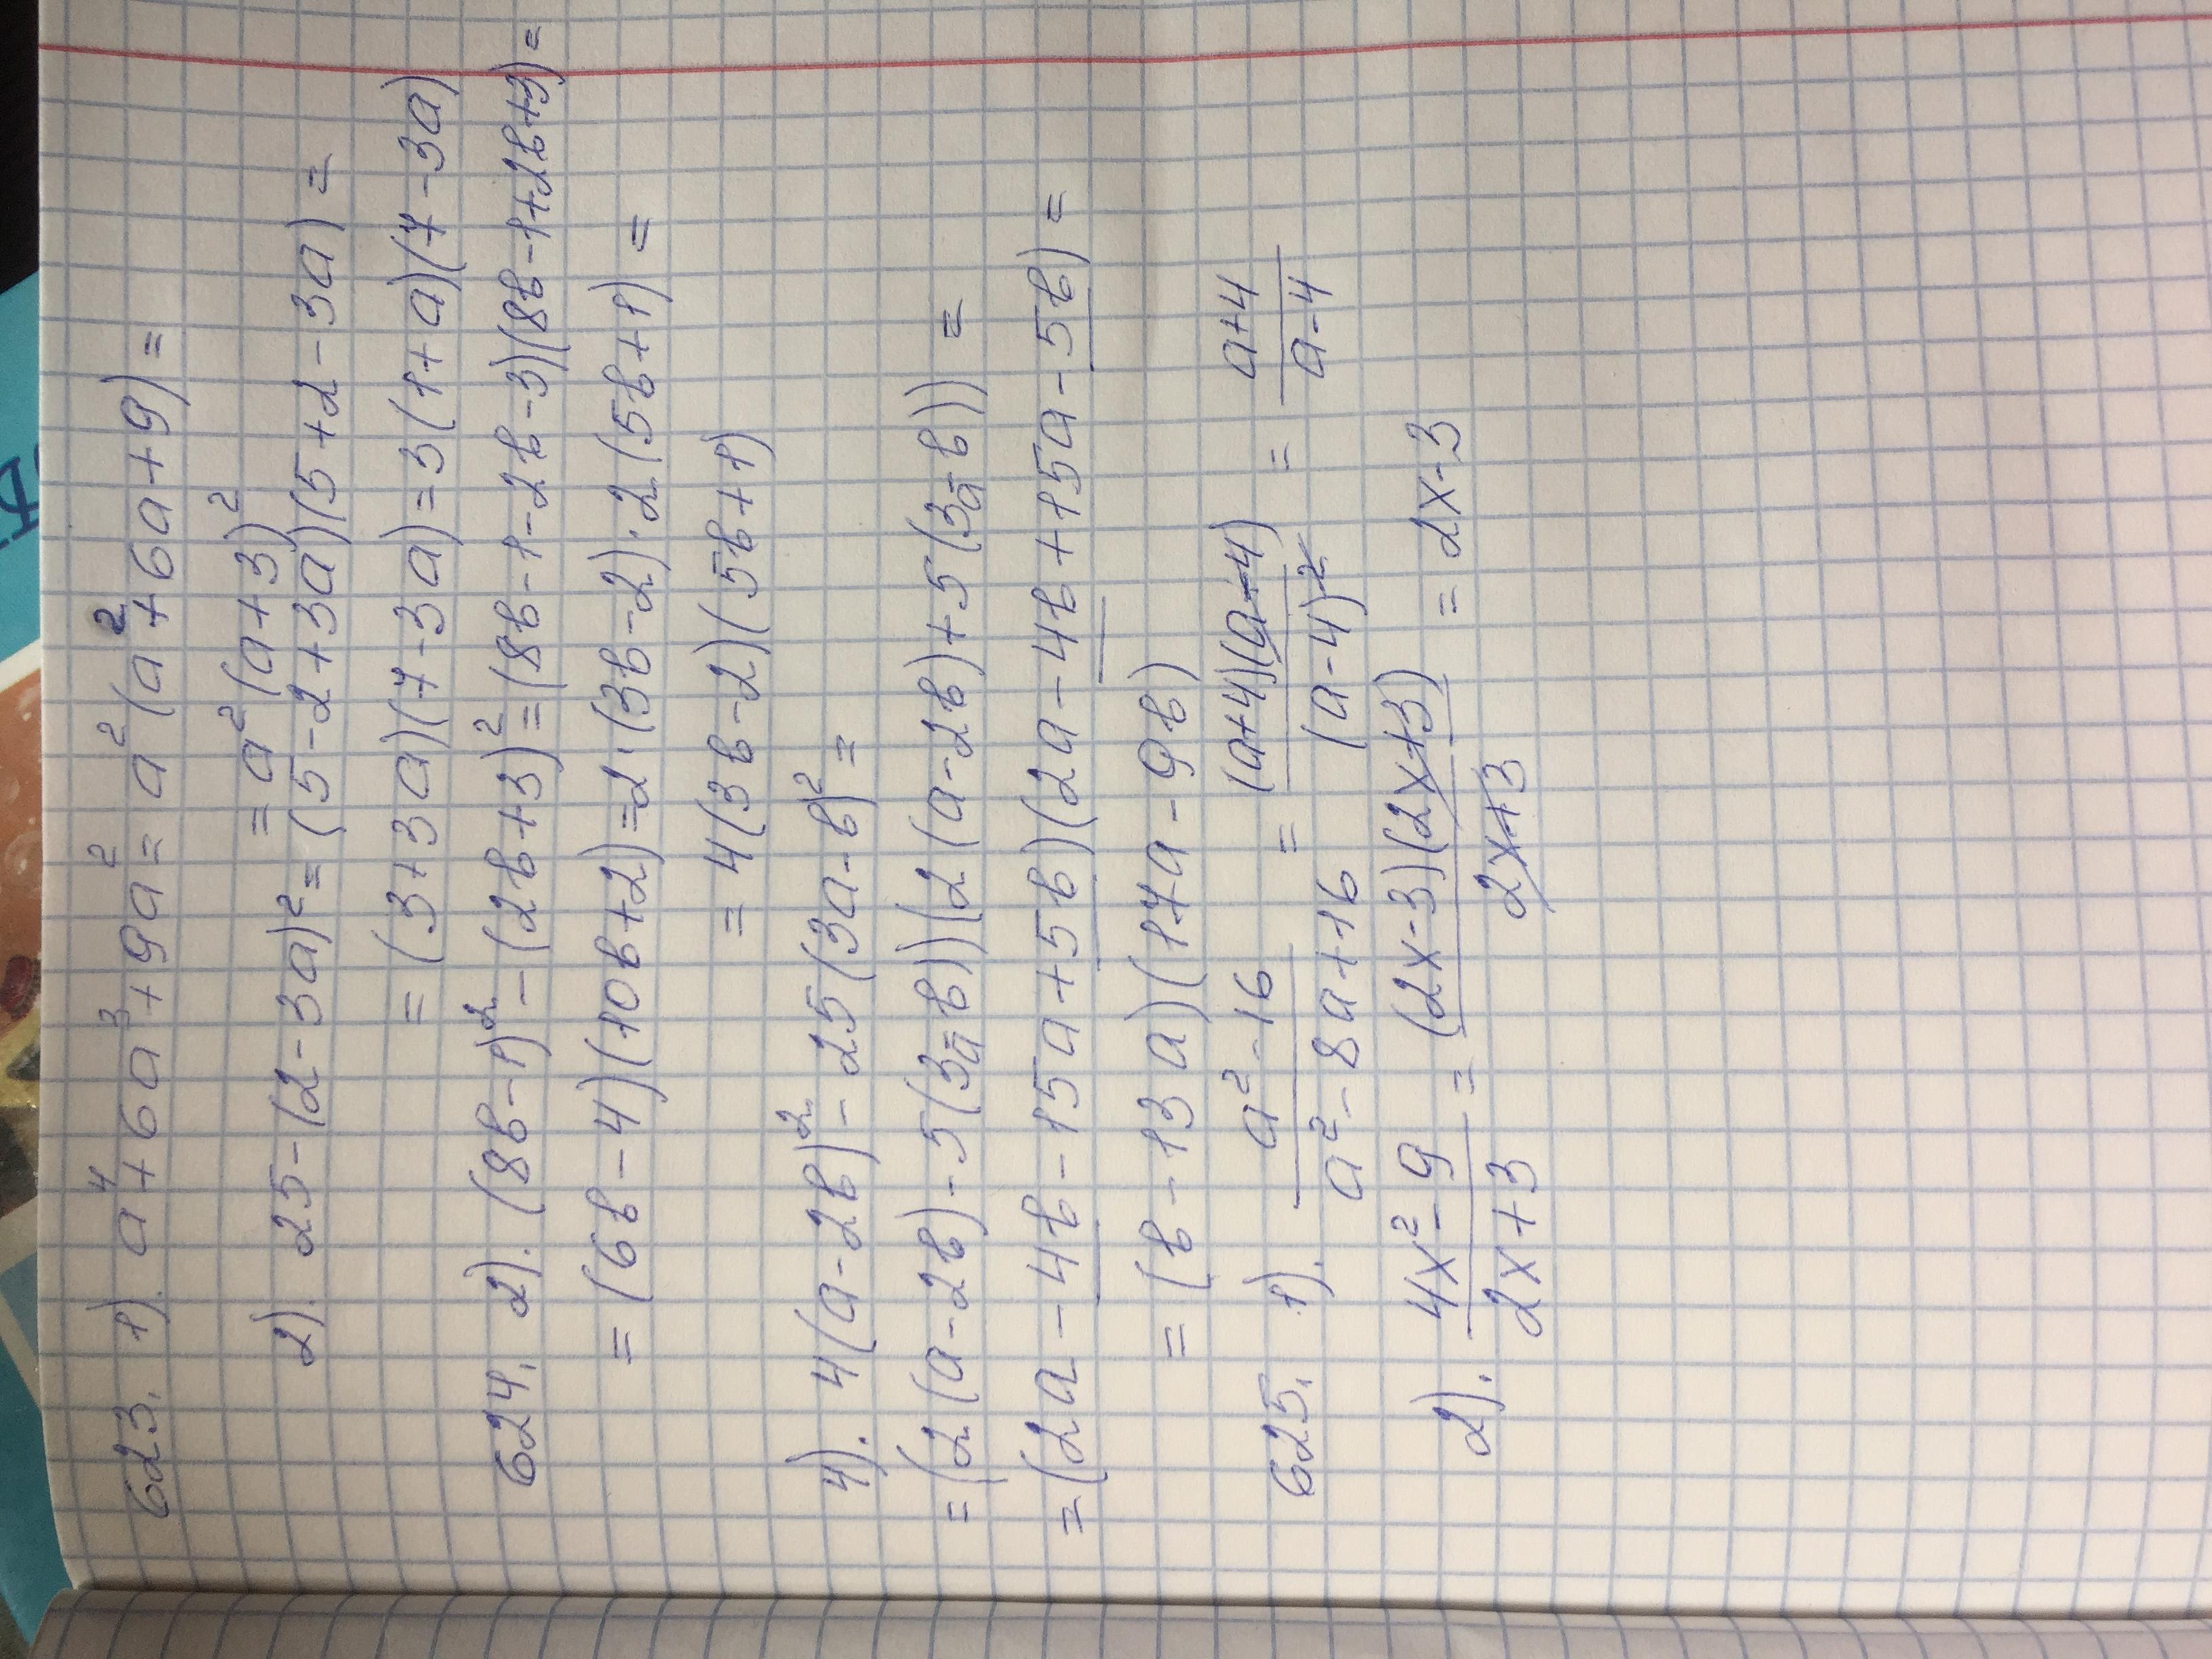 623. 1). a⁴+6a³+9a²= a²(a²+6a+9)=
= a²(a+3)²
2). 25-(2-3a)²=(5-2+3a)(5+2-3a)=
= (3+3a)(7-3a)=3(1+a)(7-3a)
624. 2). (8в-1)²-(2в+3)²=(8в-1-2в-3)(8в-1+2в+3)=
= (6в-4)(10в+2)=2·(3в-2)·2(5в+1)=
= 4(3в-2)(5в+1)
4). 4(a-2в)²-25(3a-в)²=
=(2(a-2в)-5(3a-в))(2(a-2в)+5(3a-в))=
=(2a-4в-15a+5в)(2a-4в+15a-5в)=
= (в-13a)(17a-9в)
625. 1). a²-16/a²-8a+16 = (a+4)(a-4)/(a-4)² = a+4/a-4
2). 4x²-9/2x+3 = (2x-3)(2x+3)/2x+3 = 2x-3